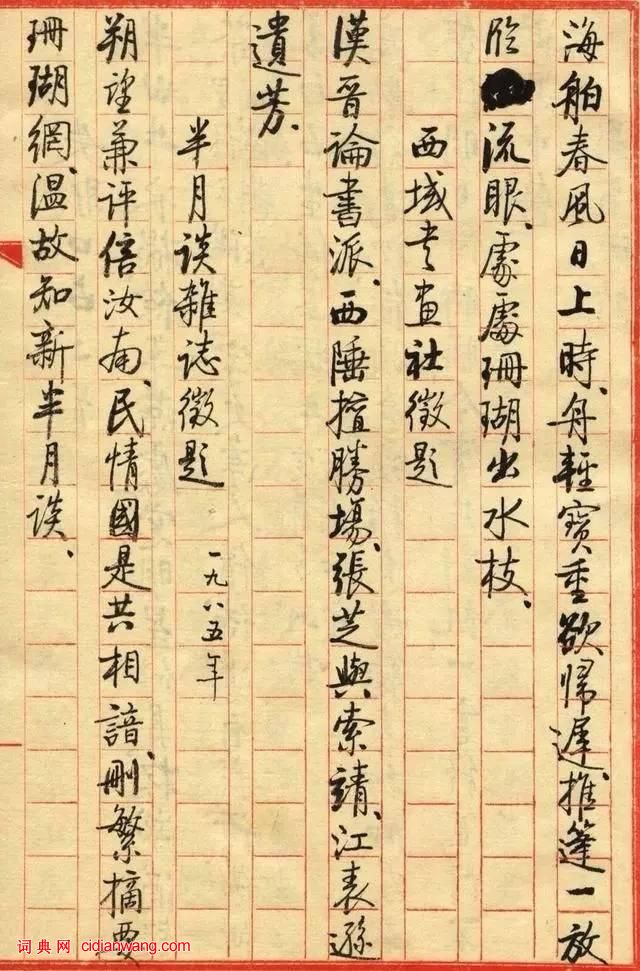 海舶春風日上時、舟輕寶重欲歸遲、推篷一放
临流眼、處處珊瑚出水枝、
西域书画社徵題
漢晉論書派、西陲擅勝場、張芝與索靖、江表遜
遺芳、
半月談雜誌徵題 一九八五年
朔望兼評倍汝南、民情國是共相諳、刪繁摘要
珊瑚網、温故知新半月談、
词典网 cidianwang.com